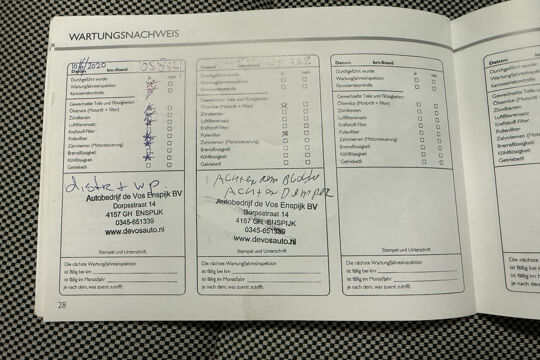 WARTUNGSNACHWEIS
10/6/2020
Datum km-Stand
Durchgeführt wurde: ja nein
Wartung/Jahresinspektion
Karosseriekontrolle
Gewechselte Teile und Flüssigkeiten:
Ölservice (Motoröl + Filter)
Zündkerzen
Luftfiltereinsatz
Kraftstoff-Filter
Pollenfilter
Zahnriemen (Motorsteuerung)
Bremsflüssigkeit
Kühlflüssigkeit
Getriebeöl
distr + wp.
Autobedrijf de Vos Enspijk BV
Dorpsstraat 14
4157 GH ENSPIJK
0345-651339
www.devosauto.nl
Stempel und Unterschrift
Die nächste Wartung/Jahresinspektion
ist fällig bei km
ist fällig im Monat/Jahr
je nach dem, was zuerst zutrifft.
Datum km-Stand
Durchgeführt wurde: ja nein
Wartung/Jahresinspektion
Karosseriekontrolle
Gewechselte Teile und Flüssigkeiten:
Ölservice (Motoröl + Filter)
Zündkerzen
Luftfiltereinsatz
Kraftstoff-Filter
Pollenfilter
Zahnriemen (Motorsteuerung)
Bremsflüssigkeit
Kühlflüssigkeit
Getriebeöl
Achter
Autobedrijf de Vos Enspijk BV
Dorpsstraat 14
4157 GH ENSPIJK
0345-651339
www.devosauto.nl
Stempel und Unterschrift
Die nächste Wartung/Jahresinspektion
ist fällig bei km
ist fällig im Monat/Jahr
je nach dem, was zuerst zutrifft.
Datum km-Stand
Durchgeführt wurde: ja nein
Wartung/Jahresinspektion
Karosseriekontrolle
Gewechselte Teile und Flüssigkeiten:
Ölservice (Motoröl + Filter)
Zündkerzen
Luftfiltereinsatz
Kraftstoff-Filter
Pollenfilter
Zahnriemen (Motorsteuerung)
Bremsflüssigkeit
Kühlflüssigkeit
Getriebeöl
Stempel und Unterschrift
Die nächste Wartung/Jahresinspektion
ist fällig bei km
ist fällig im Monat/Jahr
je nach dem, was zuerst zutrifft.
28
Datum